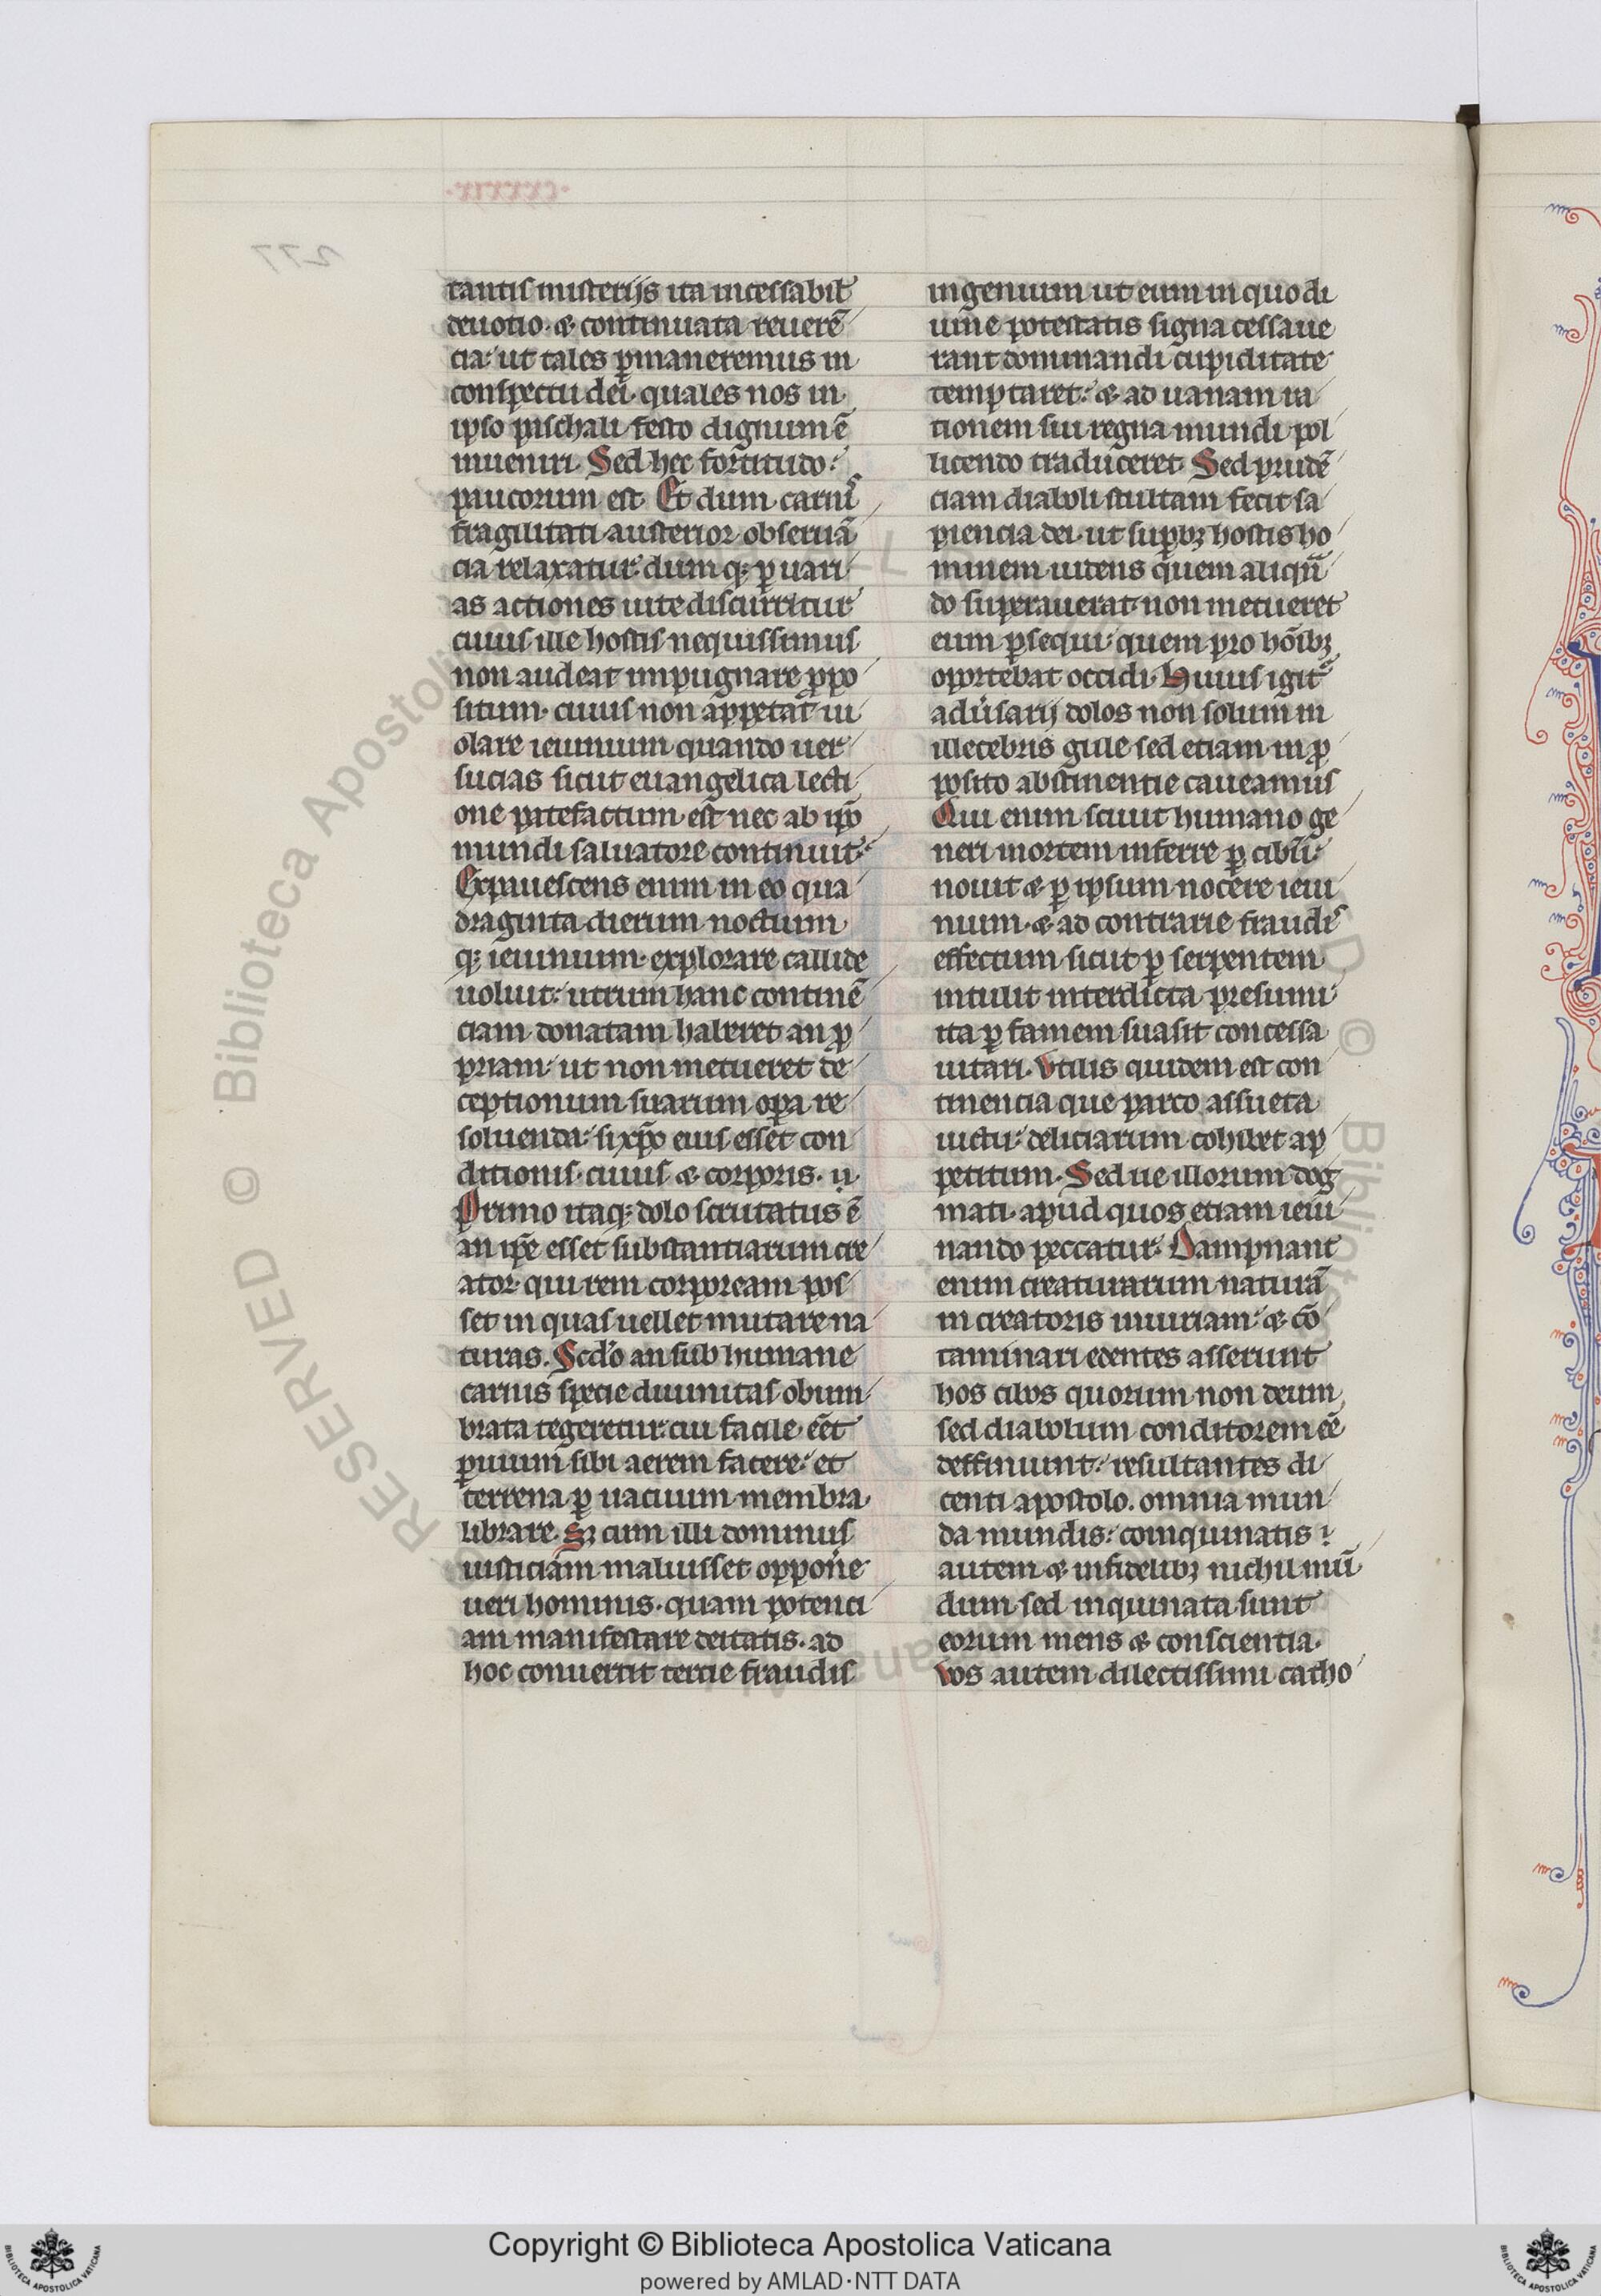 tantis misterijs ita incessabil᷑
deuotio· ⁊ continuata reuerē
cia: ut tales ꝑmaneremus in
conspectu dei· quales nos in
ipso paschali festo dignum ē
inueniri. Sed hec fortitudo:
paucorum est. Et dum carnis
fragilitati austerior obseruā
cia relaxatur: dumqꝫ ꝑ uari
as actiones uite discurritur
cuius ille hostis nequissimus
non audeat impugnare ꝓpo
situm· cuius non appetat ui
olare ieiunium quando uer
sucias sicut euangelica lecti
one patefactum est nec ab ip̄o
mundi saluatore continuit:
Expauescens enim in eo qua
draginta dierum noctium
qꝫ ieiunium· explorare callide
uoluit: utrum hanc continē
ciam donatam haberet an ꝓ
priam: ut non metueret de
ceptionum suarum opa re
soluenda: si xp̄o eius esset con
ditionis· cuius ⁊ corporis· ii
Primo itaqꝫ dolo scrutatus ē
an ip̄e esset substantiarum cre
ator· qui rem corpoream pos
set in quas uellet mutare na
turas. Scd̓o an sub humane
carnis specie diuinitas obum
brata tegeretur: cui facile eēt
ꝑuium sibi aerem facere: et
terrena ꝑ uacuum membra
librare. Sꝫ cum illi dominus
iusticiam maluisset oppon̓e
ueri hominis· quam potenci
am manifestare deitatis· ad
hoc conuertit tercie fraudis
ingenium ut eum in quo di
uine potestatis signa cessaue
rant dominandi cupiditate
temptaret: ⁊ ad uanam ra
tionem sui regna mundi pol
licendo traduceret. Sed prudē
ciam diaboli stultam fecit sa
piencia dei· ut suꝑbꝫ hostis ho
minem uidens quem aliqn̄
do superauerat non metueret
eum ꝑsequi: quem pro hōibꝫ
oportebat occidi. Huius igit᷑
adu̓sarij dolos non solum in
illecebris gule sed etiam in ꝓ
posito abstinentie caueamus
Qui enim sciuit humano ge
neri mortem inferre ꝑ cibū:
nouit ⁊ ꝑ ipsum nocere ieiu
nium· ⁊ ad contrarie fraudis
effectum sicut ꝑ serpentem
intulit interdicta presumi:
ita ꝑ famem suasit concessa
uitari. Vtilis quidem est con
tinencia que parco assueta
uictu: deliciarum cohibet ap
petitum. Sed ue illorum dog
mati· apud quos etiam ieiu
nando peccatur. Dampnant
enim creaturarum naturā
in creatoris iniuriam: ⁊ cō
taminari edentes asserunt
hos cibos quorum non deum
sed diabolum conditorem eē
deffiniunt: resultantes di
centi apostolo. omnia mun
da mundis: coinquinatis
autem ⁊ infidelibꝫ nichil mū
dum sed inquinata sunt
eorum mens ⁊ conscientia.
Vos autem dilectissimi catho
277
·cxxxix·
© Biblioteca Apostolica Vaticana
RESERVED
Copyright © Biblioteca Apostolica Vaticana
powered by AMLAD·NTT DATA
BIBLIOTECA APOSTOLICA VATICANA
BIBLIOTECA APOSTOLICA VATICANA